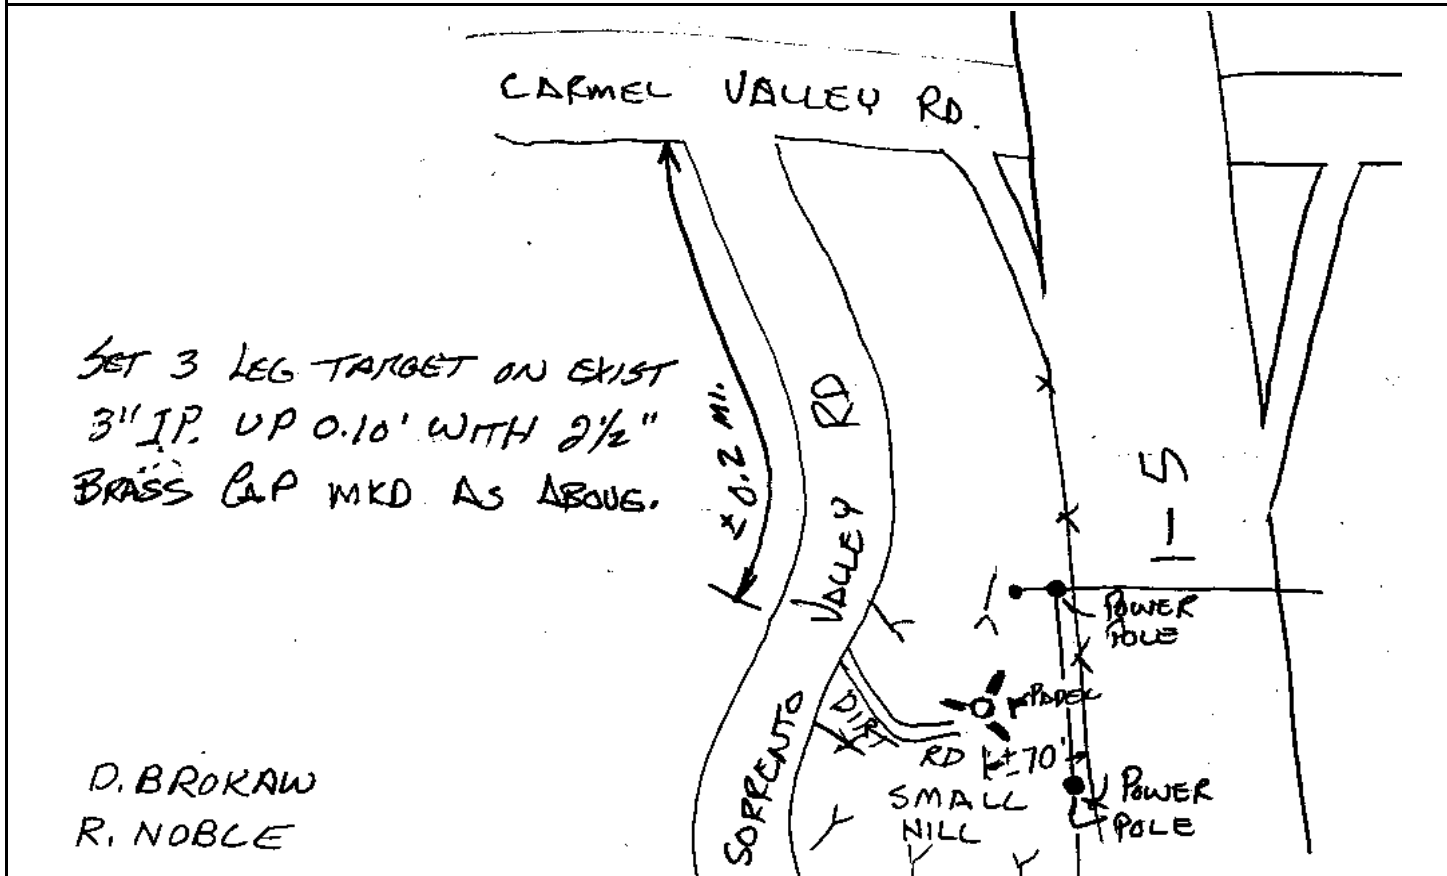 CARMEL VALLEY RD.
SET 3 LEG TARGET ON EXIST
3" I.P. UP 0.10' WITH 2½"
BRASS CAP MKD AS ABOVE.
± 0.2 MI.
SORRENTO VALLEY RD
I-5
POWER
POLE
DIRT
RD
±70'
SMALL
HILL
POWER
POLE
D. BROKAW
R. NOBLE